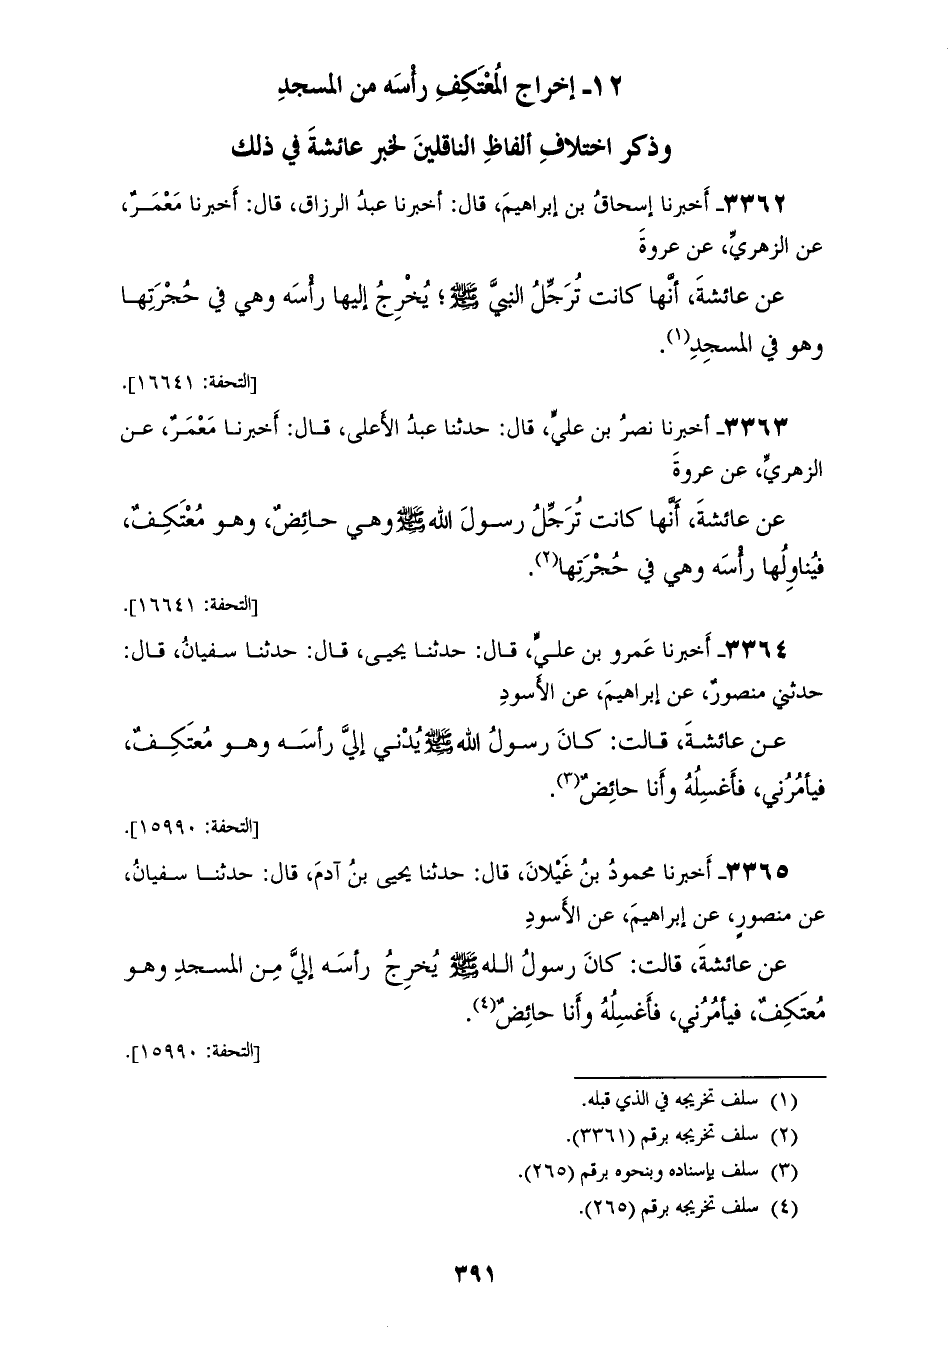 ١٢ـ إخراج المُعْتَكِفِ رأْسَه من المسجدِ
وذكر اختلافِ ألفاظِ الناقلينَ لخبر عائشةَ في ذلك
٣٣٦٢ـ أَخبرنا إسحاقُ بن إبراهيمَ، قال: أخبرنا عبدُ الرزاق، قال: أَخبرنا مَعْمَـرٌ،
عن الزهريِّ، عن عروةَ
عن عائشةَ، أنَّها كانت تُرَجِّلُ النبيَّ ﷺ؛ يُخْرِجُ إليها رأْسَه وهي في حُجْرَتِهـا
وهو في المسجِدِ(١).
[التحفة: ١٦٦٤١].
٣٣٦٣ـ أخبرنا نصرُ بن عليٍّ، قال: حدثنا عبدُ الأَعلى، قـال: أَخبرنـا مَعْمَـرٌ، عـن
الزهريِّ، عن عروةَ
عن عائشةَ، أَنَّها كانت تُرَجِّلُ رسـولَ الله ﷺ وهـي حـائِضٌ، وهـو مُعْتَكِـفٌ،
فيُناوِلُها رأْسَه وهي في حُجْرَتِها(٢).
[التحفة: ١٦٦٤١].
٣٣٦٤ـ أَخبرنا عَمرو بن علـيٍّ، قـال: حدثنـا يحيـى، قـال: حدثنـا سـفيانُ، قـال:
حدثني منصورٌ، عن إبراهيمَ، عن الأَسودِ
عـن عائشـةَ، قـالت: كـانَ رسـولُ الله ﷺ يُدْنـي إليَّ رأسَـه وهـو مُعتَكِـفٌ،
فيأمُرُني، فأَغسِلُهُ وأَنا حائِضٌ(٣).
[التحفة: ١٥٩٩٠].
٣٣٦٥ـ أَخبرنا محمودُ بنُ غَيْلانَ، قال: حدثنا يحيى بنُ آدمَ، قال: حدثنـا سـفيانُ،
عن منصورٍ، عن إبراهيمَ، عن الأَسودِ
عن عائشةَ، قالت: كانَ رسولُ اللـه ﷺ يُخرِجُ رأسَـه إليَّ مِـن المسـجدِ وهـو
مُعتَكِفٌ، فيأمُرُني، فأَغسِلُهُ وأَنا حائِضٌ(٤).
[التحفة: ١٥٩٩٠].
(١) سلف تخريجه في الذي قبله.
(٢) سلف تخريجه برقم (٣٣٦١).
(٣) سلف بإسناده وبنحوه برقم (٢٦٥).
(٤) سلف تخريجه برقم (٢٦٥).
٣٩١